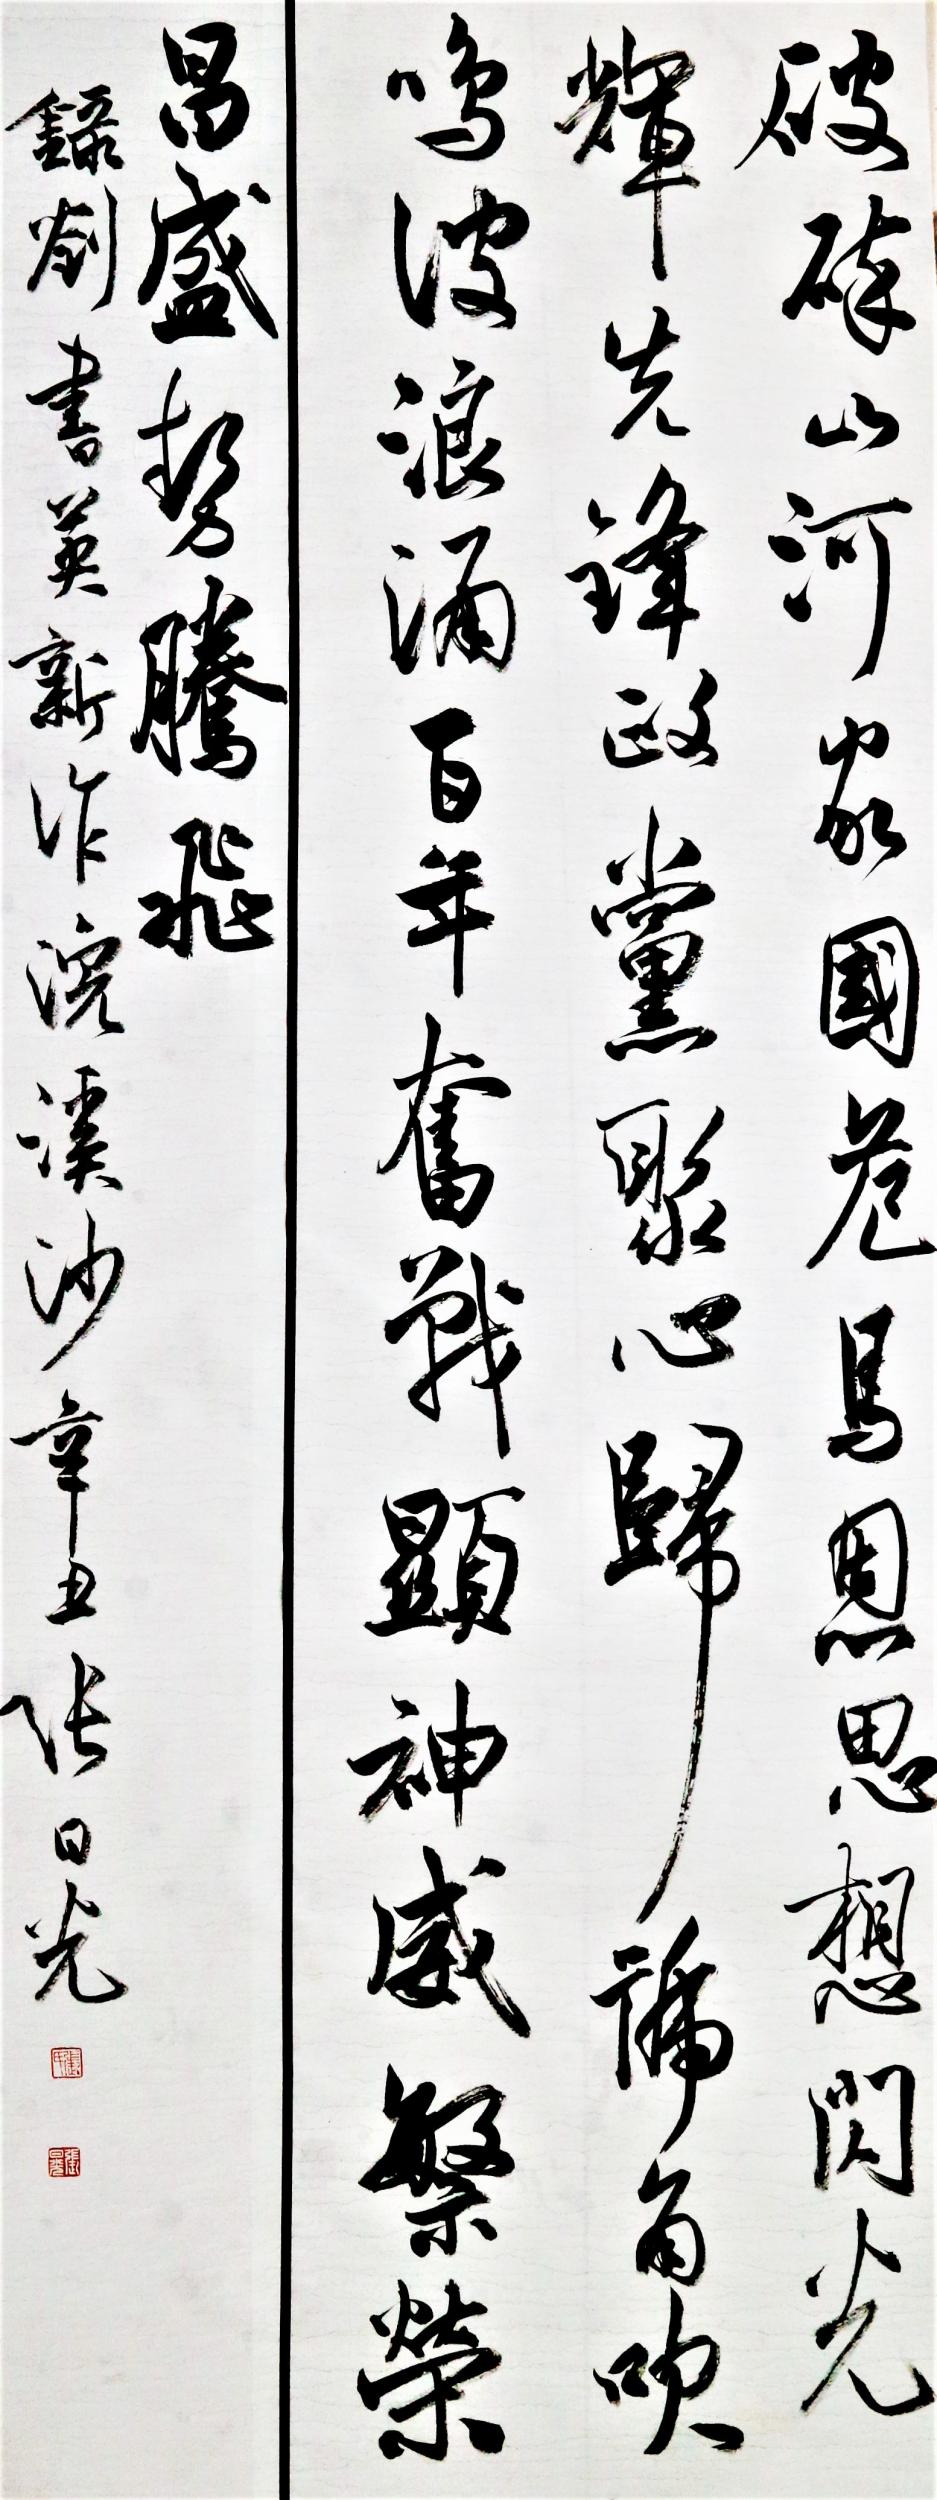 破碎山河家國危馬恩思想閃光
輝先鋒政黨聚心歸號角吹
鳴波浪涌百年奮戰顯神威繁榮
昌盛勢騰飛
錄劉書英新作浣溪沙辛丑張日光